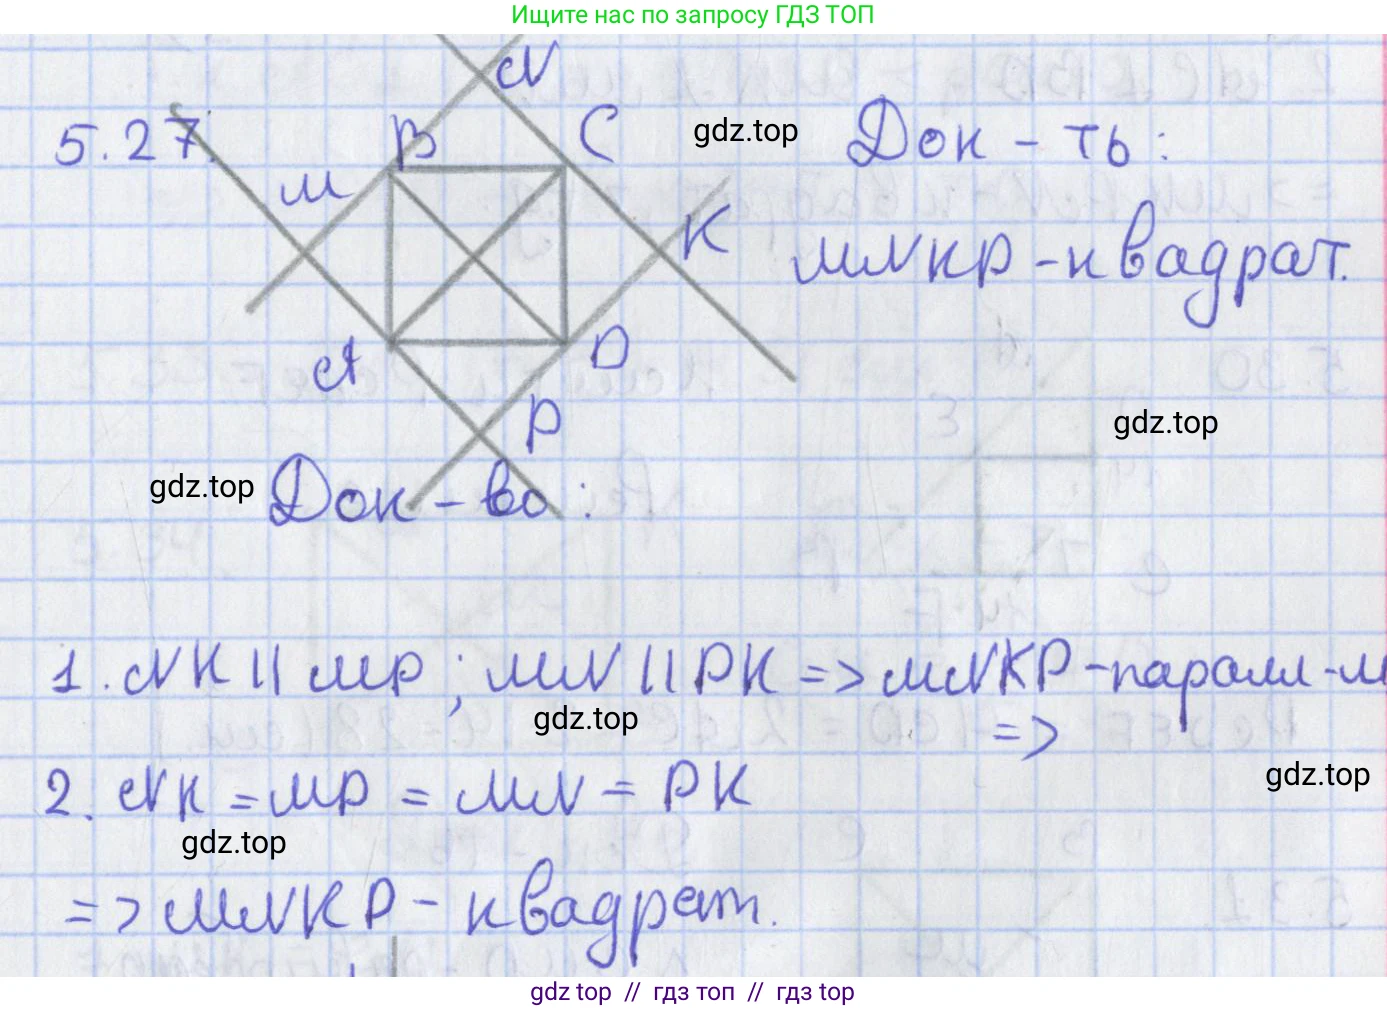 Ищите нас по запросу ГДЗ ТОП
5.27.
N
B
C
M
K
A
D
P
gdz.top
Док-ть:
MNKP - квадрат.
gdz.top
gdz.top
Док-во:
1. NK || MP; MN || PK => MNKP - паралл-м
=>
gdz.top
gdz.top
2. NK = MP = MN = PK
gdz.top
=> MNKP - квадрат.
gdz top // гдз топ // гдз top